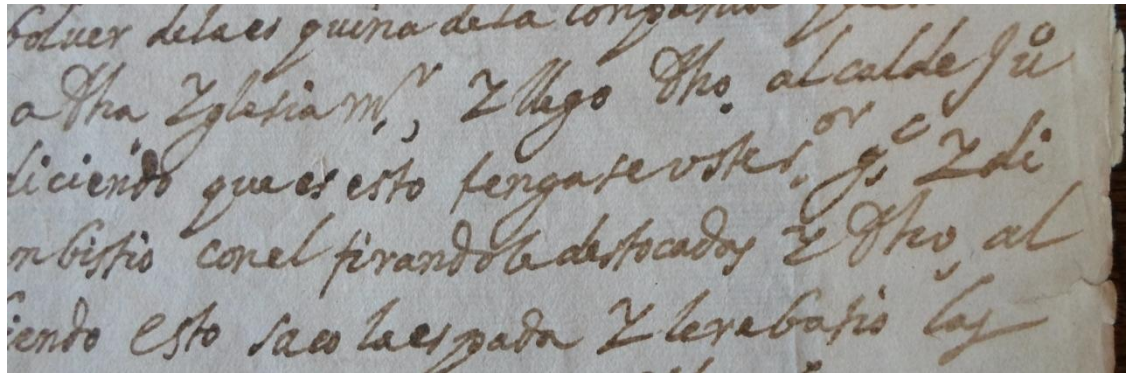 boluer de la esquina de la Compania
a dha Yglesia mr, Y llego dho alcalde Juo
diciendo que es esto tengase vsted Sor gc Y di
mbistio con el tirandole destocadas Y dho al
iendo esto saco la espada Y le rebatio las